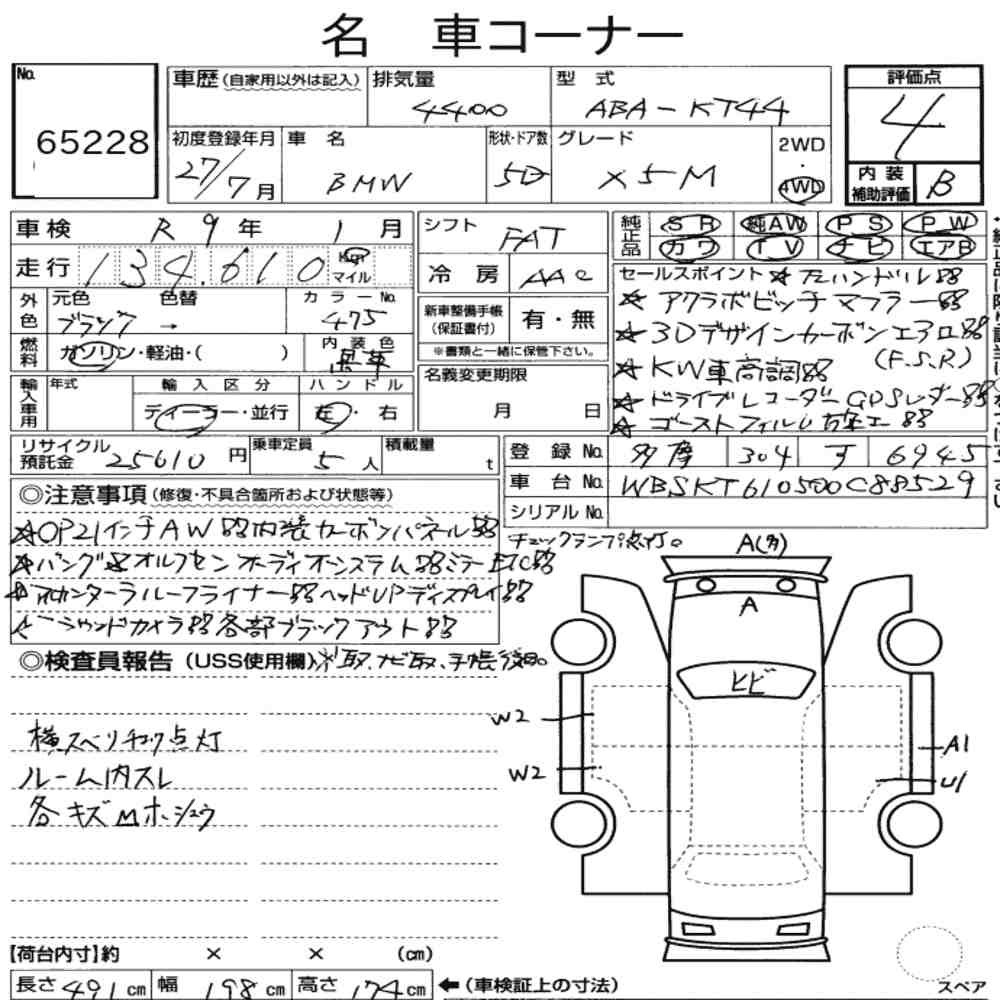 名 車コーナー
No.
65228
車歴 (自家用以外は記入)
排気量
4400
型 式
ABA-KT44
評価点
4
初度登録年月
27/7月
車 名
BMW
形状・ドア数
5D
グレード
X5M
2WD
・
4WD
内 装
補助評価
B
車検 R 9 年 1 月
走行 134,610
Km
マイル
シフト
FAT
冷 房
AAC
純正品
SR 純AW PS PW
カワ TV ナビ エアB
セールスポイント ☆左ハンドル
☆アクラポビッチマフラー
☆3Dデザインカーボンエアロ
(F.S.R)
☆KW車高調
☆ドライブレコーダーGPSレーダー
☆ゴーストフィルム施工
外色
元色 色替
ブラック →
カラーNo.
475
新車整備手帳
(保証書付)
有・無
※書類と一緒に保管下さい。
燃料
ガソリン・軽油・( )
内装色
黒革
輸入車用
年式
輸入区分
ディーラー・並行
ハンドル
左・右
名義変更期限
月 日
リサイクル
預託金
25610 円
乗車定員
5 人
積載量
t
登録No. 多摩 304 す 6945
車台No. WBSKT610500C88529
シリアルNo.
◎注意事項 (修復・不具合箇所および状態等)
☆OP21インチAW 内装カーボンパネル
☆バング&オルフセンオーディオシステム ミラーETC
☆アルカンターラルーフライナー ヘッドUPディスプレイ
☆サラウンドカメラ 各部ブラックアウト
チェックランプ点灯。
◎検査員報告 (USS使用欄) ※取、ナビ取、手帳後日。
横スベリチェック点灯
ルーム内スレ
各キズMホシュウ
A(タ)
A
ヒビ
W2
W2
A1
U1
【荷台内寸】約 × × (cm)
長さ 491 cm 幅 198 cm 高さ 174 cm ←(車検証上の寸法)
スペア